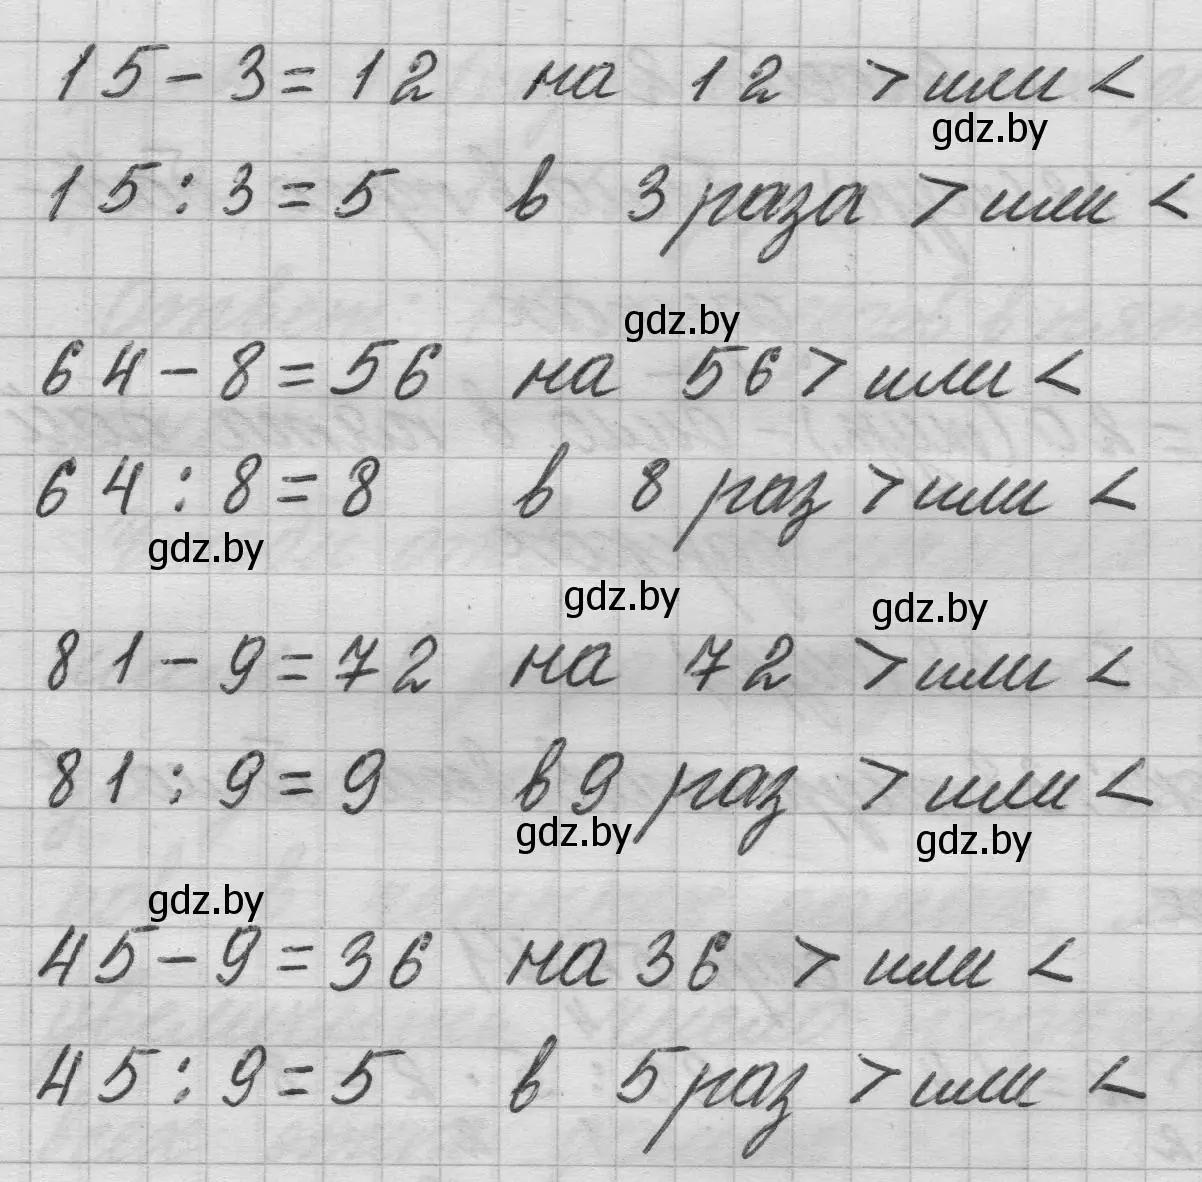 15 - 3 = 12 на 12 > или <
gdz.by
15 : 3 = 5 в 3 раза > или <
gdz.by
64 - 8 = 56 на 56 > или <
64 : 8 = 8 в 8 раз > или <
gdz.by
gdz.by gdz.by
81 - 9 = 72 на 72 > или <
81 : 9 = 9 в 9 раз > или <
gdz.by gdz.by
gdz.by
45 - 9 = 36 на 36 > или <
45 : 9 = 5 в 5 раз > или <